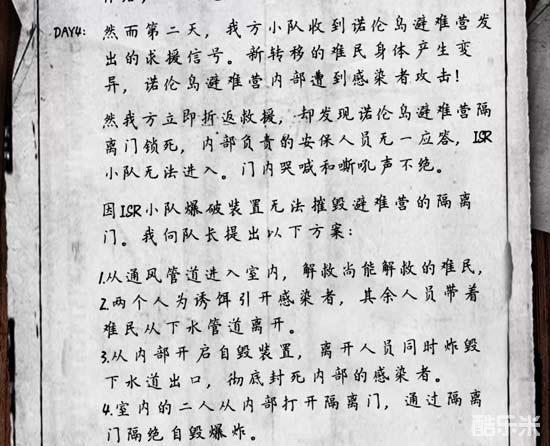 DAY4: 然而第二天，我方小队收到诺伦岛避难营发
出的求援信号。新转移的难民身体产生变
异，诺伦岛避难营内部遭到感染者攻击！
然我方立即折返救援，却发现诺伦岛避难营隔
离门锁死，内部负责的安保人员无一应答，ISR
小队无法进入。门内哭喊和嘶吼声不绝。
因ISR小队爆破装置无法摧毁避难营的隔离
门。我向队长提出以下方案：
1.从通风管道进入室内，解救尚能解救的难民，
2.两个人为诱饵引开感染者，其余人员带着
难民从下水管道离开。
3.从内部开启自毁装置，离开人员同时炸毁
下水道出口，彻底封死内部的感染者。
4.室内的二人从内部打开隔离门，通过隔离
门隔绝自毁爆炸。
酷乐米